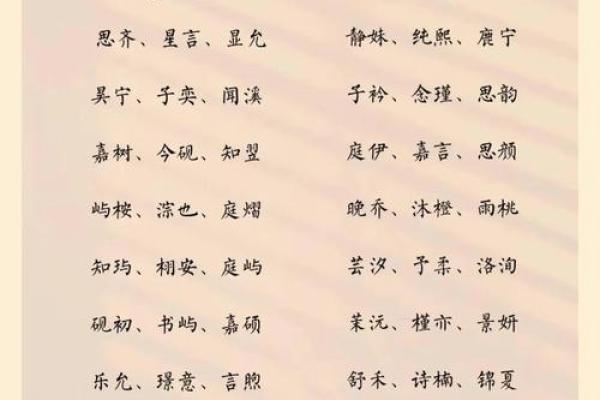 思齐、星言、显允
静姝、纯熙、鹿宁
昊宁、子奕、闻溪
子衿、念瑾、思韵
嘉树、今砚、知翌
庭伊、嘉言、思颜
屿桉、淙也、庭熠
晚乔、沐橙、雨桃
知玙、栩安、庭屿
芸汐、予柔、洛洵
砚初、书屿、嘉硕
茉沅、槿亦、景妍
乐允、璟意、言煦
舒禾、诗楠、锦夏